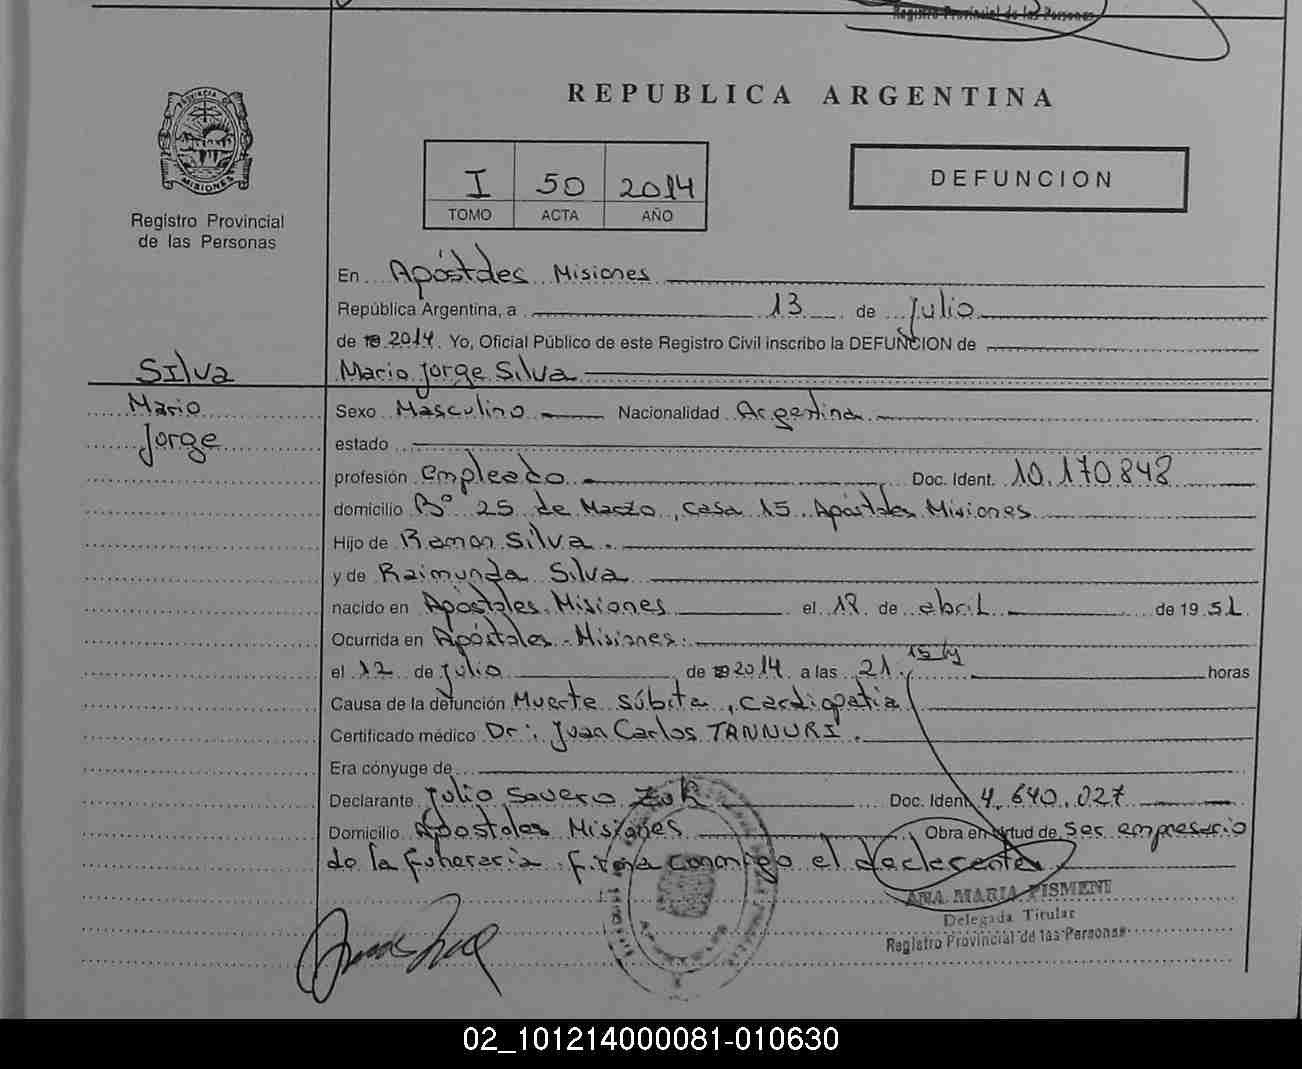 Registro Provincial de las Personas
REPUBLICA ARGENTINA
PROVINCIA DE
MISIONES
Registro Provincial
de las Personas
I 50 2014
TOMO ACTA AÑO
DEFUNCION
En Apóstoles Misiones
República Argentina, a 13 de Julio
de 19 2014 Yo, Oficial Público de este Registro Civil inscribo la DEFUNCION de
Silva Mario Jorge Silva
Mario Sexo Masculino Nacionalidad Argentina
Jorge estado
profesión empleado Doc. Ident. 10.170848
domicilio Bº 25 de Marzo, casa 15 Apóstoles Misiones
Hijo de Ramon Silva.
y de Raimunda Silva
nacido en Apóstoles Misiones el de abril de 19 51
Ocurrida en Apóstoles - Misiones.
el 12 de julio de 19 2014 a las 21. 15 horas
Causa de la defunción Muerte súbita, cardiopatia
Certificado médico Dr: Juan Carlos TANNURI.
Era cónyuge de
Declarante Julio Doc. Ident. 4.640.027
Domicilio Apóstoles Misiones Obra en virtud de ser empresario
de la funeraria. firma conmigo el declarante.
ANA MARIA PISMENI
Delegada Titular
Registro Provincial de las Personas
02_101214000081-010630